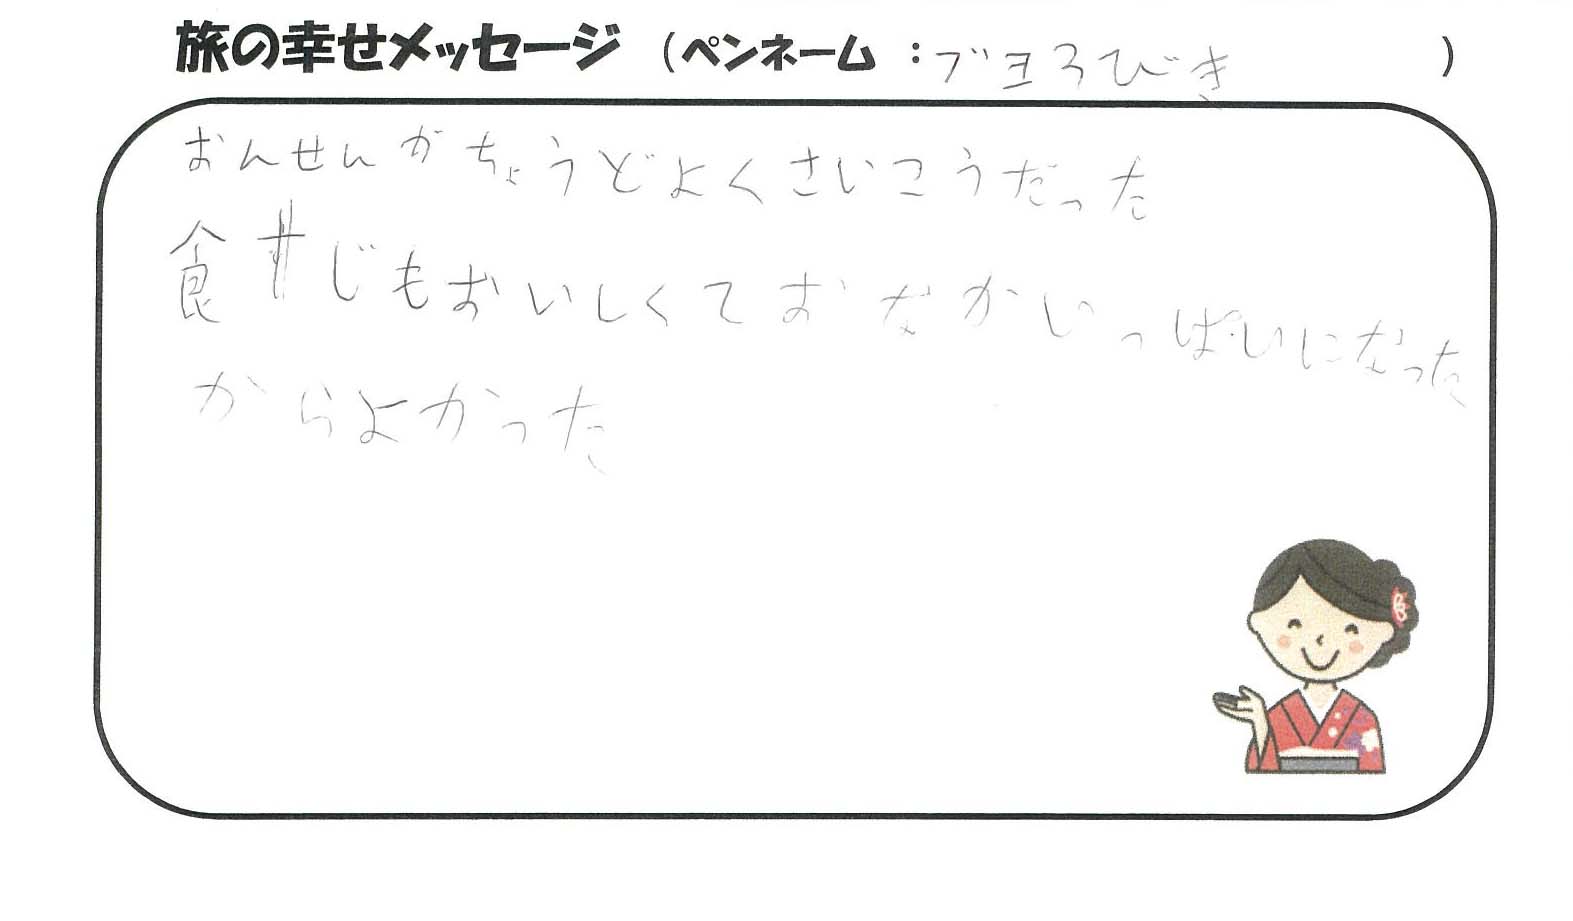 旅の幸せメッセージ (ペンネーム :ブヨろびき )
おんせんがちょうどよくさいこうだった
食じもおいしくておなかいっぱいになった
からよかった